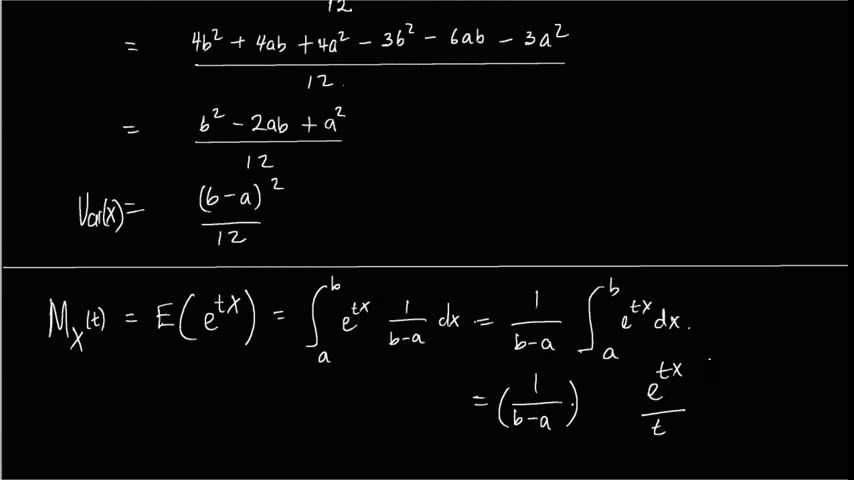 12
= 4b² + 4ab + 4a² - 3b² - 6ab - 3a² / 12.
= b² - 2ab + a² / 12
Var(x) = (b-a)² / 12
M_X(t) = E(e^{tx}) = ∫_a^b e^{tx} 1/(b-a) dx = 1/(b-a) ∫_a^b e^{tx} dx.
= (1/(b-a)). e^{tx}/t